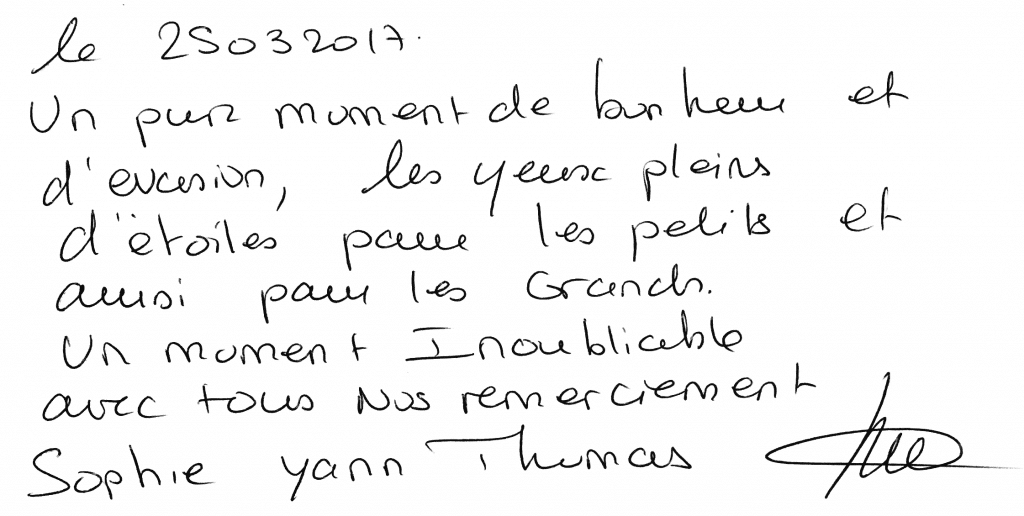 le 25032017.
Un pur moment de bonheur et
d'evasion, les yeux pleins
d'étoiles pour les petits et
aussi pour les Grands.
Un moment Inoubliable
avec tous Nos remerciement
Sophie yann Thomas